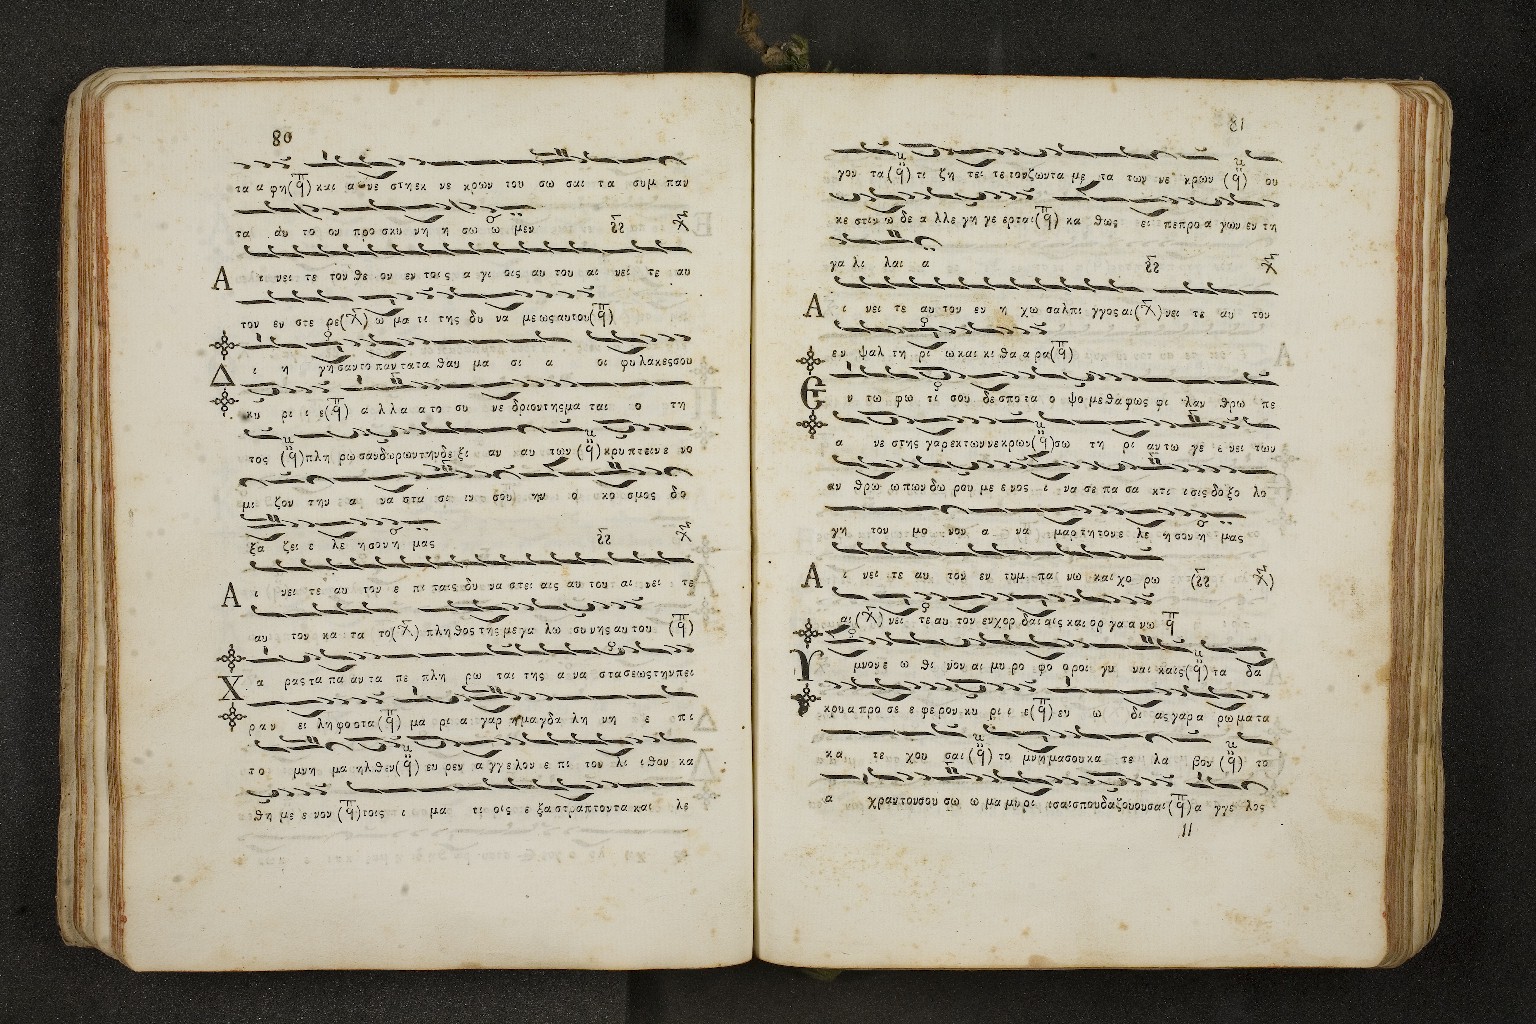 80
τα α φη(q̈) και α νε στη εκ νε κρων του σω σαι τα συμ παν
τα αυ το ου προ σκυ νη η σω ω μεν
Α ι νει τε τον θε ον εν τοις α γι οις αυ του αι νει τε αυ
τον εν στε ρε(χ) ω μα τι της δυ να με ως αυ του(q)
Δ ι η γη σαν το παν τα τα θαυ μα σι α οι φυ λα κες σου
κυ ρι ι ε(q) α λλα α το συ νε δρι ον της μα ται ο τη
τος (q) πλη ρω σαν δω ρων την δε ξι αν αυ των (q) κρυ πτειν ε νο
μι ζον την α να στα σι ιν σου ην ο κο σμος δο
ξα ζει ε λε η σον η μας
Α ι νει τε αυ τον ε πι ταις δυ να στει αις αυ του αι νει τε
αυ τον κα τα το(χ) πλη θος της με γα λω συ νης αυ του (q)
Χ α ρας τα πα αν τα πε πλη ρω ται της α να στα σε ως την πει
ραν ει λη φο ο τα(q) μα ρι α γαρ η μα γδα λη νη ε πι
το μνη μα ηλ θεν(q) ευ ρεν α γγε λον ε πι τον λι ι θον κα
θη με ε νον (q) τοις ι μα τι οις ε ξα στρα πτον τα και λε
81
γον τα(q) τι ζη τει τε τον ζων τα με τα των νε κρων (q) ου
κε στιν ω δε α λλε γη γε ερ ται(q) κα θως ει πε προ α γων εν τη
γα λι λαι α
Α ι νει τε αυ τον εν η χω σαλ πι γγος αι(χ) νει τε αυ τον
εν ψαλ τη ρι ω και κι θα α ρα(q)
Ε ν τω φω τι σου δε σπο τα ο ψο με θα φως φι λαν θρω πε
α νε στης γαρ εκ των νε κρων(q) σω τη ρι αν τω γε ε νει των
αν θρω ω πων δω ρου με ε νος ι να σε πα σα κτι ι σις δο ξο λο
γη τον μο νον α να μαρ τη τον ε λε η σον η μας
Α ι νει τε αυ τον εν τυμ πα νω και χο ρω
αι (χ) νει τε αυ τον εν χορ δαι αις και ορ γα α νω q
Υ μνον ε ω θι νον αι μυ ρο φο ο ροι γυ ναι καις(q) τα δα
κρυ α προ σε ε φε ρον κυ ρι ι ε(q) ευ ω δι ας γαρ α ρω μα τα
κα τε χου σαι (q) το μνη μα σου κα τε λα βον (q) το
α χραν τον σου σω ω μα μυ ρι ι σαι σπου δα ζου ου σαι(q) α γγε λος
11